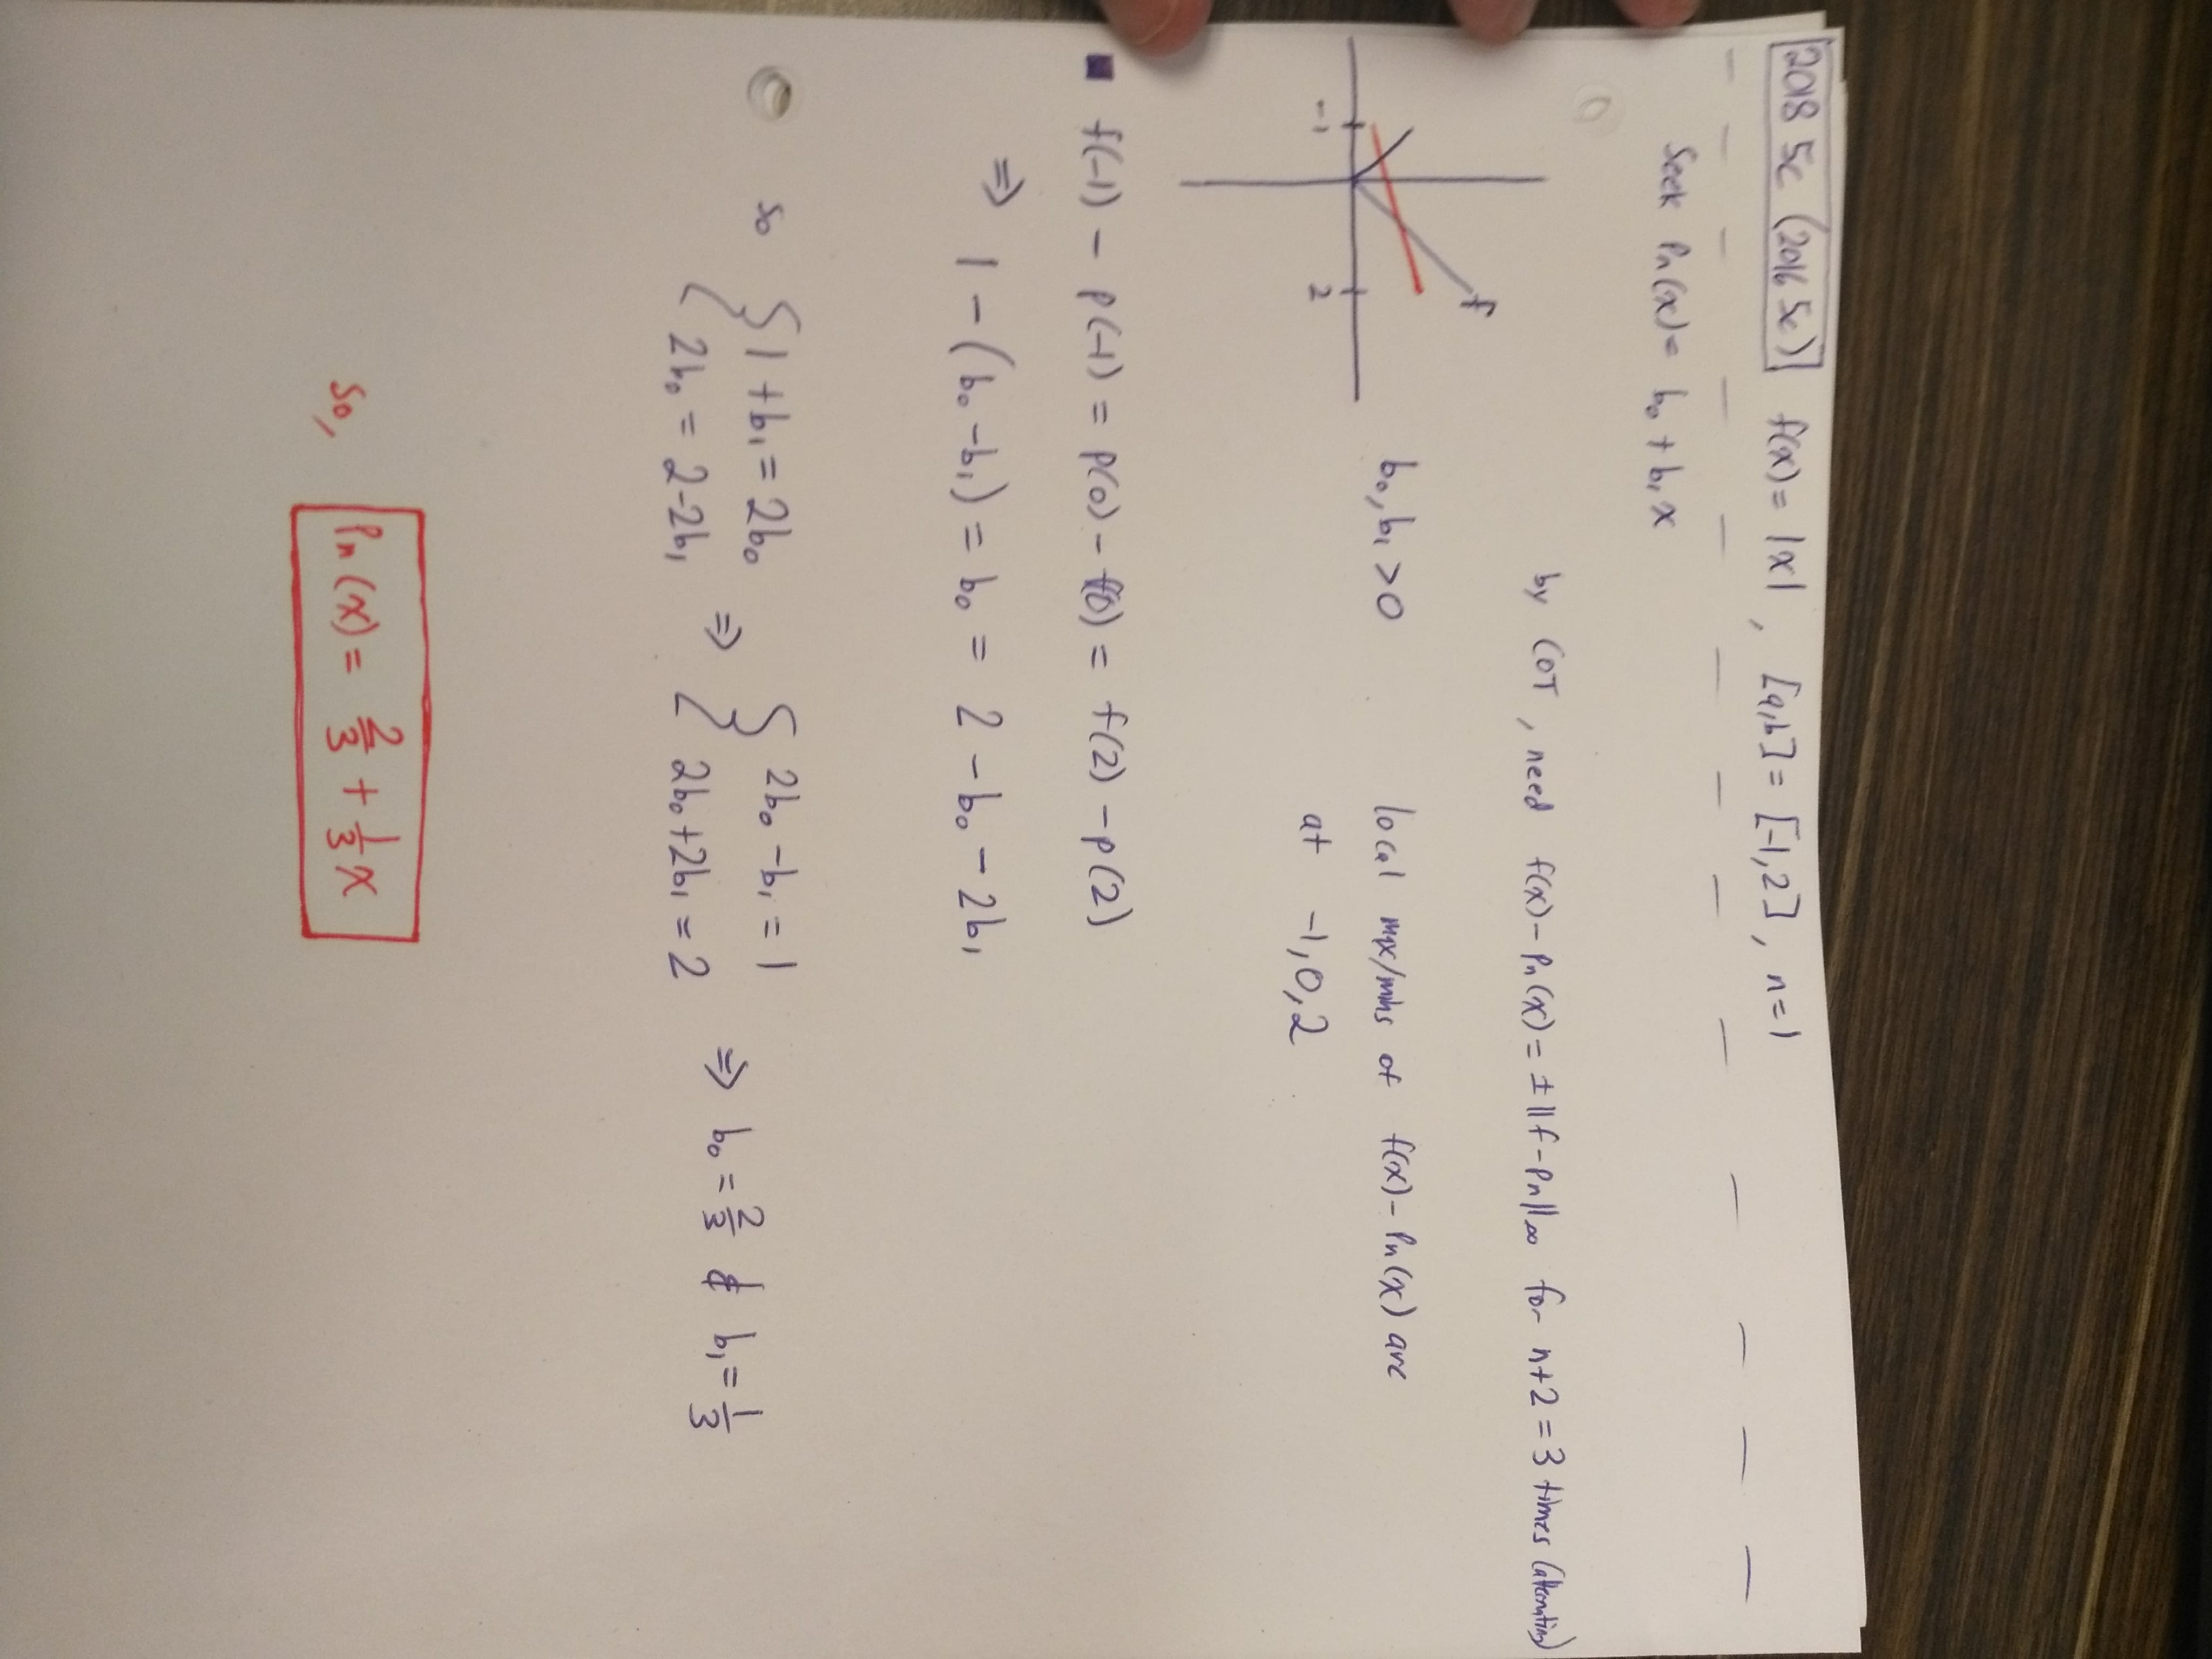 2018 5c (2016 5c) f(x) = |x| , [a,b] = [-1,2] , n=1
Seek Pn(x) = b₀ + b₁x
by COT, need f(x) - Pn(x) = ± ||f - Pn||∞ for n+2 = 3 times (alternating)
f
-1 2
b₀, b₁ > 0
local max/mins of f(x) - Pn(x) are
at -1, 0, 2
f(-1) - p(-1) = p(0) - f(0) = f(2) - p(2)
⇒ 1 - (b₀ - b₁) = b₀ = 2 - b₀ - 2b₁
so { 1 + b₁ = 2b₀ ⇒ { 2b₀ - b₁ = 1 ⇒ b₀ = 2/3 & b₁ = 1/3
2b₀ = 2 - 2b₁ 2b₀ + 2b₁ = 2
so, Pn(x) = 2/3 + 1/3 x